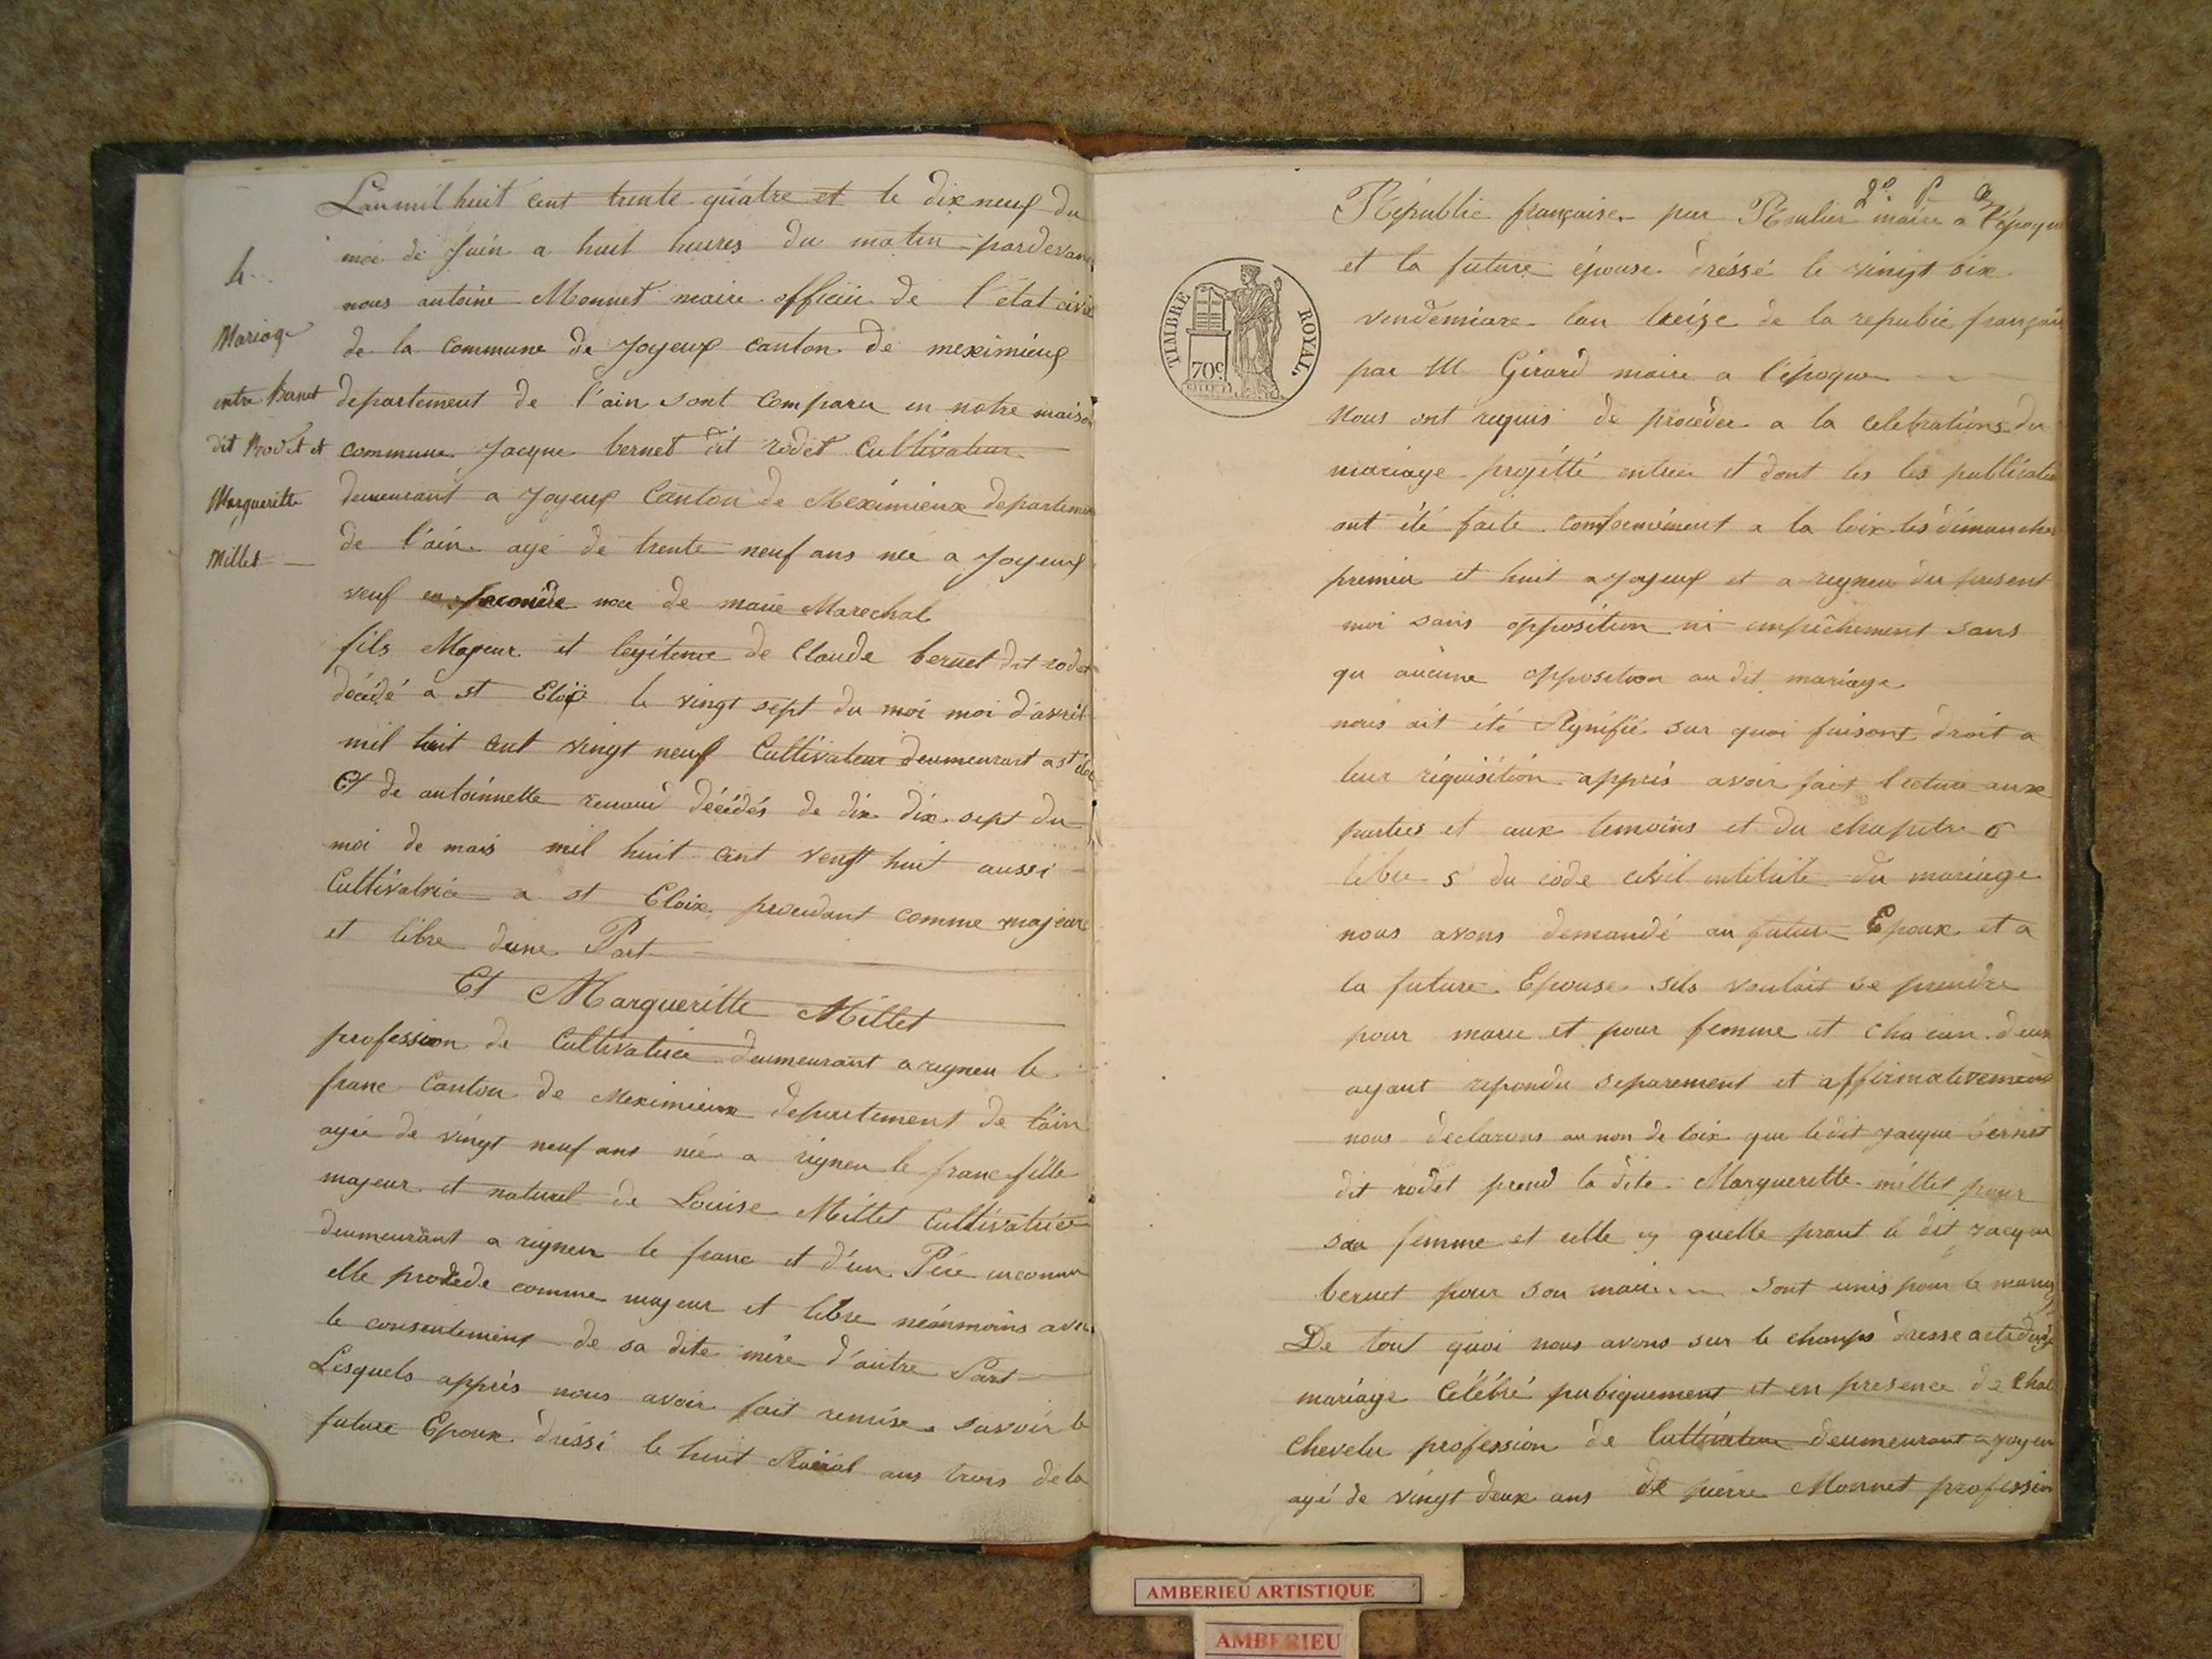 4.
Mariage
entre Bernet
dit Rodet et
Margueritte
Millet
L'an mil huit cent trente quatre et le dix neuf du
moi de Juin a huit heures du matin pardevant
nous antoine Monnet maire officier de l'état civil
de la Commune de Joyeux Canton de meximieux
departement de l'ain sont Comparu en notre maison
commune Jacque bernet dit rodet Cultivateur
demeurant a Joyeux Canton de Meximieux departement
de l'ain agé de trente neuf ans née a Joyeux
veuf en seconde noce de marie Marechal
fils Majeur et legitime de Claude bernet dit rodet
décédé a st Eloi le vingt sept du moi moi d'avril
mil huit cent vingt neuf Cultivateur deumeurant a st
Et de antoinnette renaud décédés de dix dix sept du
moi de mais mil huit cent vengt huit aussi
Cultivatrice a st Eloix procedant comme majeure
et libre dune Part
Et Margueritte Millet
profession de Cultivatrice deumeurant a rigneu le
franc Canton de Meximieux departement de l'ain
agée de vingt neuf ans née a rigneu le franc fille
majeur et naturel de Louise Millet Cultivatrice
deumeurant a rigneu le franc et d'un Père inconnu
elle procede comme majeur et libre néanmoins avec
le consentement de sa dite mère d'autre Part
Lesquels apprès nous avoir fait remise savoir le
future Epoux dressé le huit floréal ans trois de la
TIMBRE ROYAL.
70c
Républic française par maire a l'époque
et la future épouse dréssé le vingt six
vendemiare l'an treize de la republic français
par M Girard maire a l'époque
Nous ont requis de procéder a la celebrations du
mariage projetté entreu et dont les les publication
ont été faite conformément a la loix les dimanches
premier et huit a Joyeux et a rigneu du present
moi sans opposition ni empêchement sans
qu aucune opposition au dit mariage
nous ait été Signifié sur quoi faisont droit a
leur réquisition apprés avoir fait lecture aux
parties et aux temoins et du chapitre 6
libre 5 du code civil intitulé du mariage
nous avons demandé au future Epoux et a
la future Epouse sils voulait se prendre
pour marie et pour femme et chacun deux
ayant repondu separement et affirmativement
nous declarons au non de loix que ledit Jacque bernet
dit rodet prend la dite Margueritte millet pour
sa femme et elle quelle prant le dit Jacque
bernet pour son mari sont unis pour le mariage
De tout quoi nous avons sur le champs dresse acte dudit
mariage Célébré pubiquement et en presence de
chevelu profession de Cultivateur deumeurant a Joyeu
agé de vingt deux ans de pierre Monnet profession
AMBERIEU ARTISTIQUE
AMBERIEU